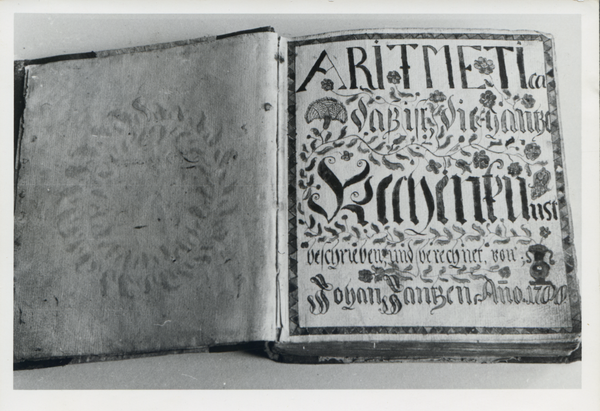 ARITMETIca
Daß ist Die gantze
Rechenkunst
beschrieben und berechnet, von :
Johan Jantzen Año.